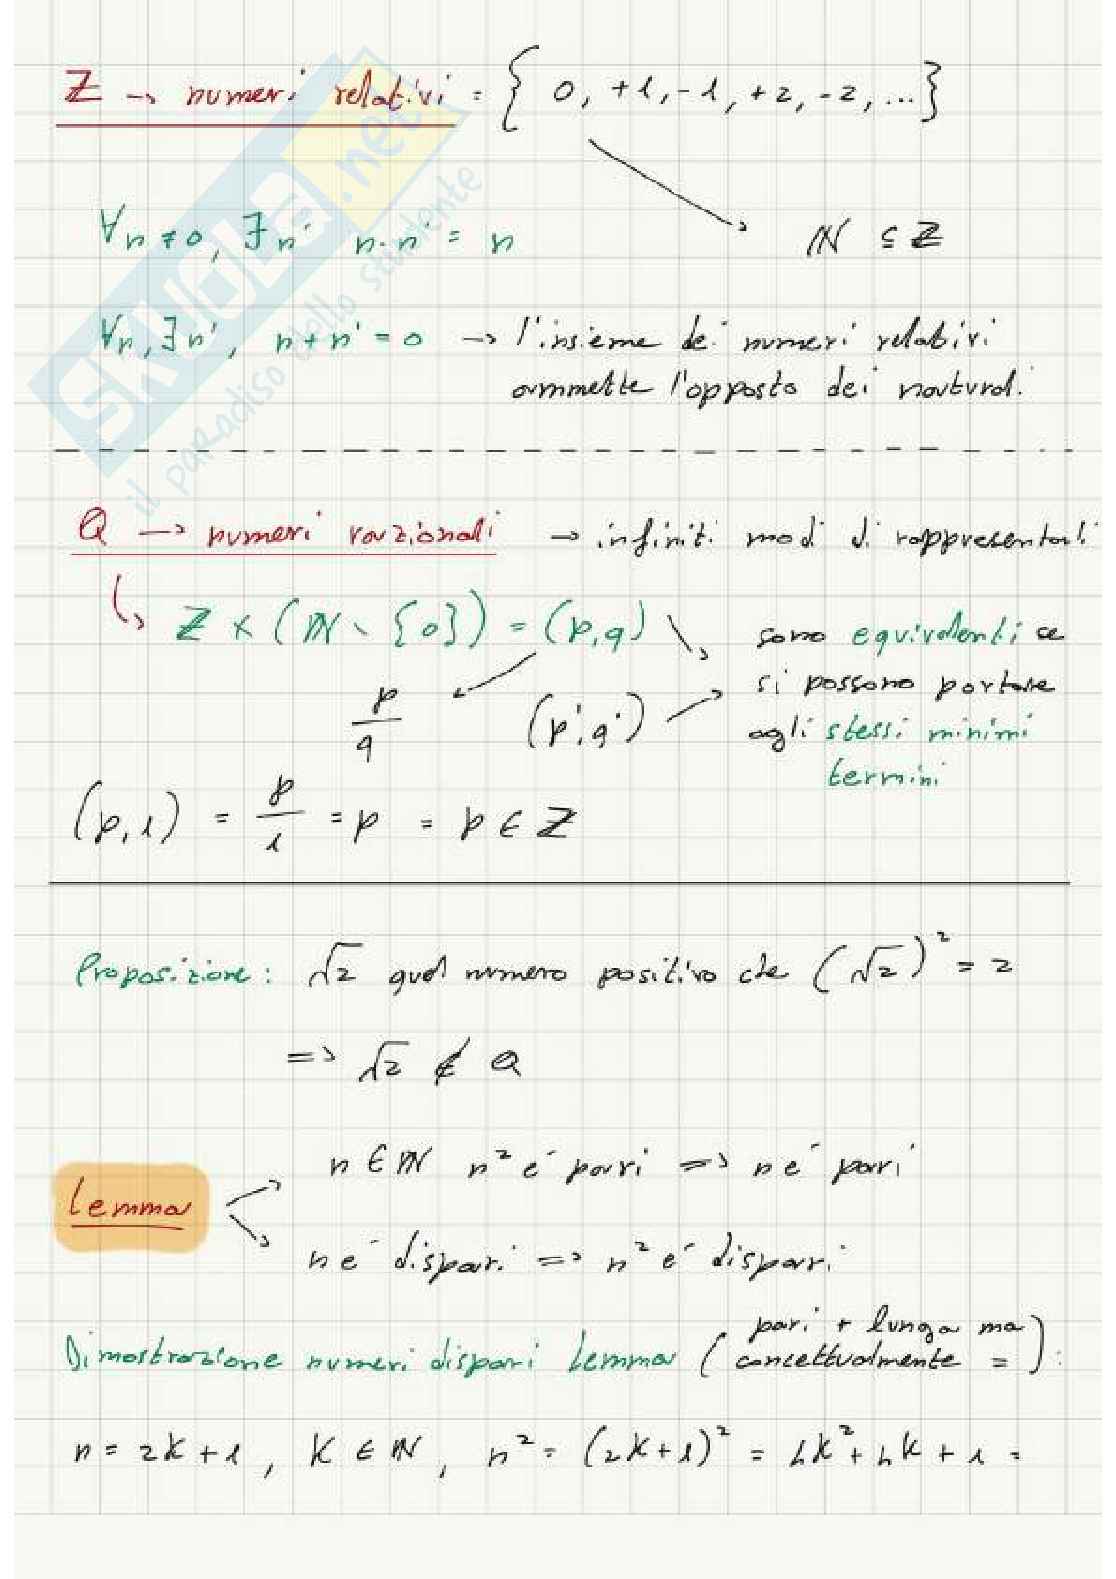 ℤ → numeri relativi = { 0, +1, -1, +2, -2, ... }
∀n ≠ 0, ∃ n' n · n' = n
ℕ ⊆ ℤ
∀n, ∃ n', n + n' = 0 → l'insieme dei numeri relativi
ammette l'opposto dei naturali
SKUOLA.net
il paradiso dello studente
Q → numeri razionali → infiniti modi di rappresentarli
↳ ℤ × (ℕ \ {0}) = (p, q)
sono equivalenti se
p/q (p', q') si possono portare
agli stessi minimi
termini
(p, 1) = p/1 = p = p ∈ ℤ
Proposizione: √2 quel numero positivo che (√2)² = 2
=> √2 ∉ Q
n ∈ ℕ n² e' pari => n e' pari
Lemma
n e' dispari => n² e' dispari
Dimostrazione numeri dispari Lemma (pari + lunga ma
concettualmente =):
n = 2K + 1, K ∈ ℕ, n² = (2K + 1)² = 4K² + 4K + 1 =